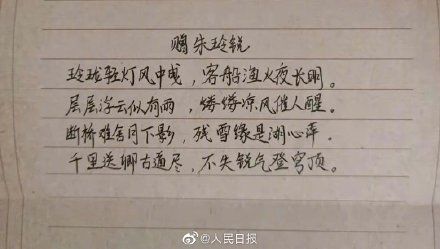 赠朱玲锐
玲珑轻灯风中曳，客船渔火夜长明。
层层浮云似有雨，缕缕凉风催人醒。
断桥难舍月下影，残雪缘是湖心萍。
千里送卿古道尽，不失锐气登穹顶。
@人民日报